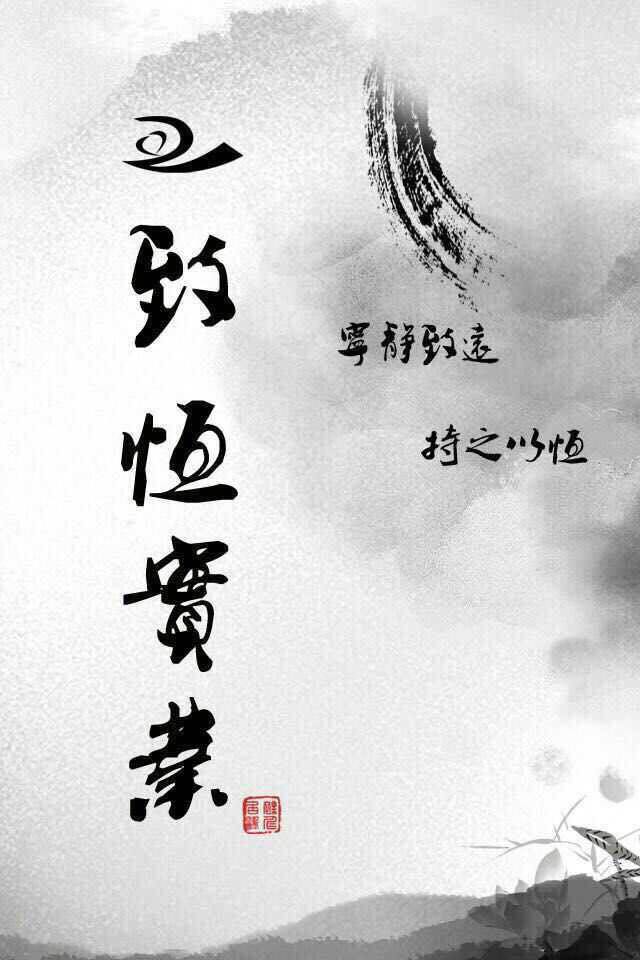 致恒實業
寧靜致遠
持之以恒